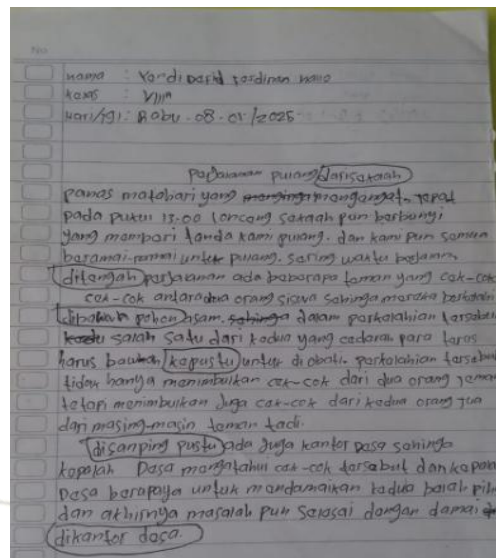 No
nama : Yardi David Ferdinan
Kelas : VIIIA
Hari/tgl : Rabu - 08 - 01 / 2025
perjalanan pulang darisakaah
panas matahari yang mengangat tepat
pada pukul 13.00 loncang sakaah pun berbunyi
yang memberi tanda kami pulang. dan kami pun semua
beramai-ramai untuk pulang. sering waktu berjalan
ditengah perjalanan ada beberapa teman yang cek-cok
cek-cok antara dua orang siswa sehingga mereka berkelahi
dibawah pohon asam. sehingga dalam perkelahian tersebut
salah satu dari kedua yang cedarah para
harus bawah kepustu untuk di obati. perkelahian tersebut
tidak hanya menimbulkan cek-cok dari dua orang teman
tetapi menimbulkan juga cek-cok dari kedua orang tua
dari masing-masin teman tadi.
disanping pustu ada juga kantor Desa sehingga
kepalah Desa mengatahui cek-cok tersebut dan kepala
Desa berapaya untuk mandamaikan kedua belah pih
dan akhirnya masalah pun selasai dengan damai
dikantor desa.